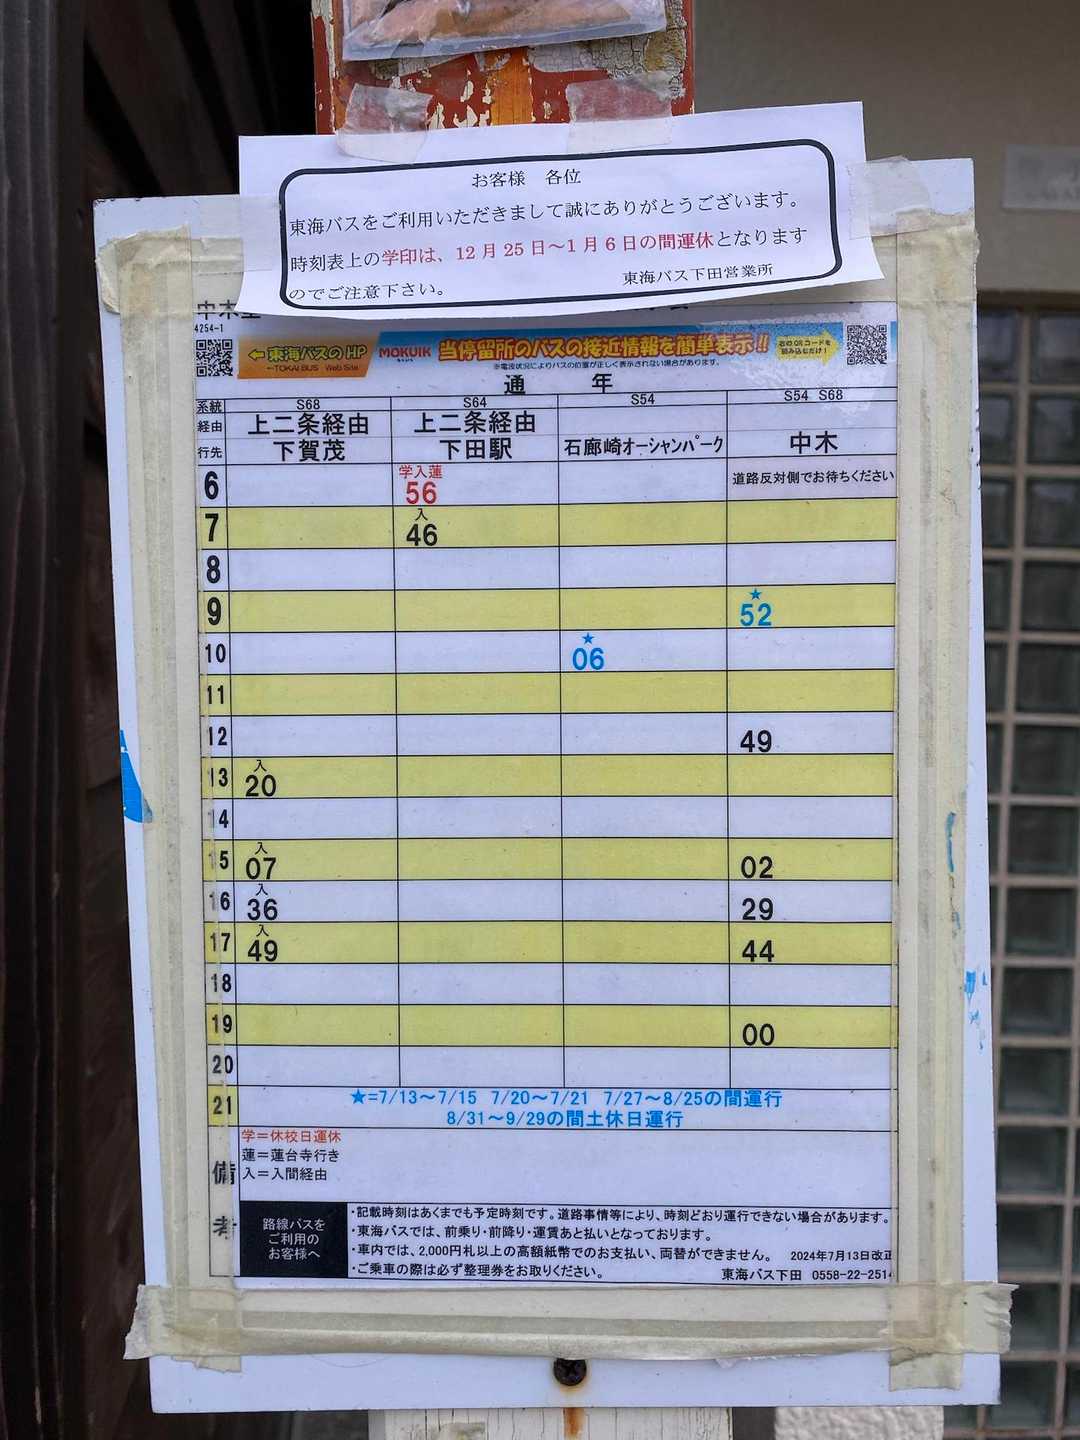 お客様　各位
東海バスをご利用いただきまして誠にありがとうございます。
時刻表上の学印は、12月25日～1月6日の間運休となります
のでご注意下さい。
東海バス下田営業所
4254-1
←東海バスのHP
←TOKAI BUS Web Site
MOKUIK
当停留所のバスの接近情報を簡単表示!!
※電波状況によりバスの位置が正しく表示されない場合があります。
右のQRコードを
読み込むだけ!
通　年
系統 S68 S64 S54 S54 S68
経由 上二条経由 上二条経由
行先 下賀茂 下田駅 石廊崎オーシャンパーク 中木
道路反対側でお待ちください
学入蓮
6 56
入
7 46
8
★
9 52
★
10 06
11
12 49
入
13 20
14
入
15 07 02
入
16 36 29
入
17 49 44
18
19 00
20
21
★=7/13～7/15 7/20～7/21 7/27～8/25の間運行
8/31～9/29の間土休日運行
備考
学＝休校日運休
蓮＝蓮台寺行き
入＝入間経由
路線バスを
ご利用の
お客様へ
・記載時刻はあくまでも予定時刻です。道路事情等により、時刻どおり運行できない場合があります。
・東海バスでは、前乗り・前降り・運賃あと払いとなっております。
・車内では、2,000円札以上の高額紙幣でのお支払い、両替ができません。
2024年7月13日改正
・ご乗車の際は必ず整理券をお取りください。
東海バス下田 0558-22-2514